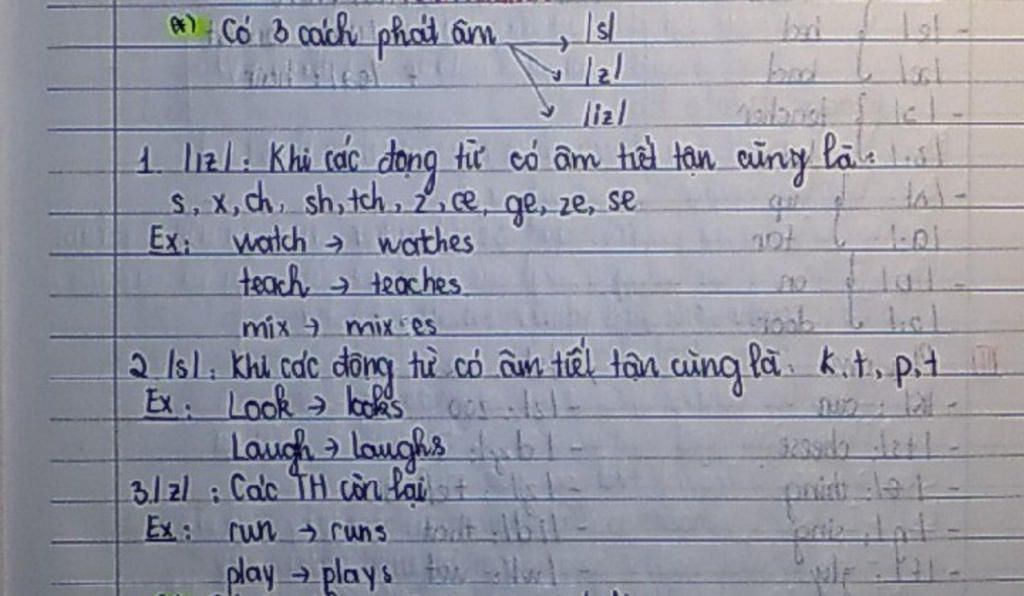 *) Có 3 cách phát âm → /s/
/z/
/iz/
1. /iz/: Khi các động từ có âm tiết tận cùng là:
s, x, ch, sh, tch, z, ce, ge, ze, se
Ex: watch → watches
teach → teaches
mix → mixes
2 /s/: Khi các động từ có âm tiết tận cùng là: k, t, p, t
Ex: Look → looks
Laugh → laughs
3. /z/: Các TH còn lại
Ex: run → runs
play → plays